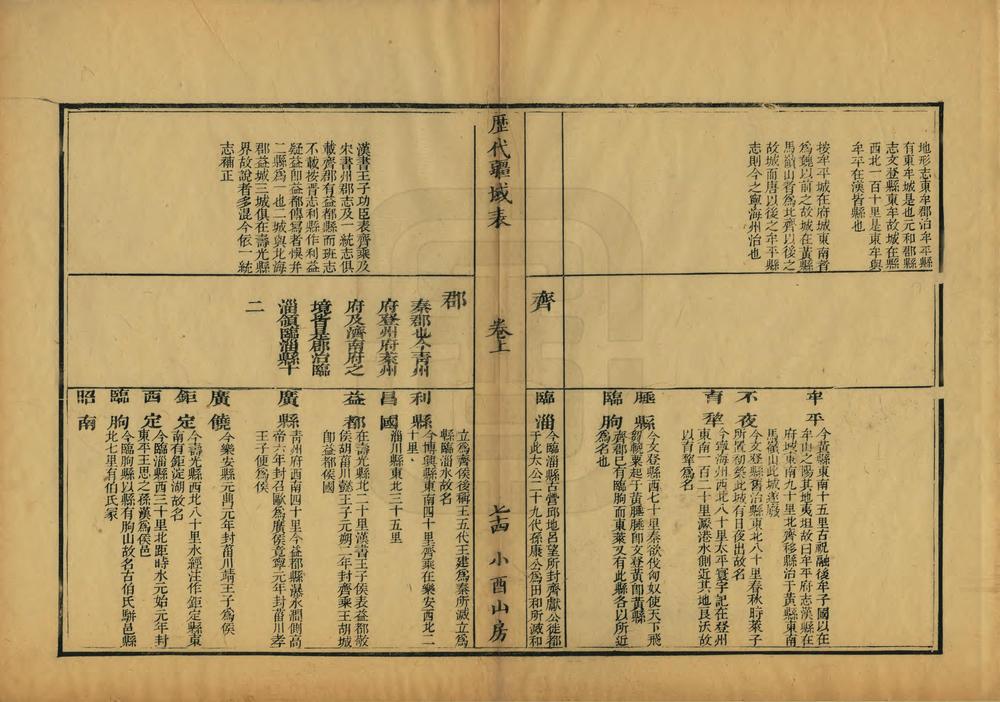 地形志東牟郡治牟平縣
有東牟城是也元和郡縣
志文登縣東牟故城在縣
西北一百十里是東牟與
牟平在漢皆縣也
按牟平城在府城東南者
為魏以前之故城在黃縣
馬嶺山者為北齊以後之
故城而唐以後之牟平縣
志則今之寧海州治也
齊
牟平
今黃縣東南十五里古祝融後牟子國以在
牟山之陽其地夷坦故曰牟平府志漢縣在
府城東南九十里北齊移縣治于黃縣東南
馬嶺山此城遂廢
不夜
今文登縣舊治縣東北八十里春秋時萊子
所置初築此城有日夜出故名
育犂
今寧海州西北八十里太平寰宇記在登州
東南一百二十里瀕港水側近其地良沃故
以育犂為名
腄縣
今文登縣西七十里秦欲伐匈奴使天下飛
芻輓粟起于黃腄腄即文登黃即黃縣
臨朐
齊郡已有臨朐而東萊又有此縣各以所近
為名也
臨淄
今臨淄縣古營邱地呂望所封齊獻公徙都
于此太公二十九代孫康公為田和所滅和
歷代疆域表
卷上
七西
小酉山房
立為齊侯後稱王五代王建為秦所滅立為
縣臨淄水故名
漢書王子功臣表齊乘及
宋書州郡志及一統志俱
載齊郡有益都縣而班志
不載按晉志利縣作利益
疑益即益都傳寫者悞幷
二縣為一也二城與北海
郡益城三城俱在壽光縣
界故說者多混今依一統
志補正
郡
秦郡也今青州
府登州府萊州
府及濟南府之
境皆是郡治臨
淄領臨淄縣十
二
利縣
今博興縣東南四十里齊乘在樂安西北二
十里
昌國
淄川縣東北三十五里
益都
在壽光縣北二十里漢書王子侯表益都敬
侯胡菑川懿王子元朔二年封齊乘王胡城
即益都侯國
廣縣
青州府西南四十里今益都縣瀑水澗側高
帝六年封召歐為廣侯竟寧元年封菑川孝
王子便為侯
廣饒
今樂安縣元鼎元年封菑川靖王子為侯
鉅定
今壽光縣西北八十里水經注作鉅定縣東
南有鉅淀湖故名
西定
今臨淄縣西三十里北距時水元始元年封
東平王思之孫漢為侯邑
臨朐
今臨朐縣以縣有朐山故名古伯氏駢邑縣
北七里有伯氏冢
昭南